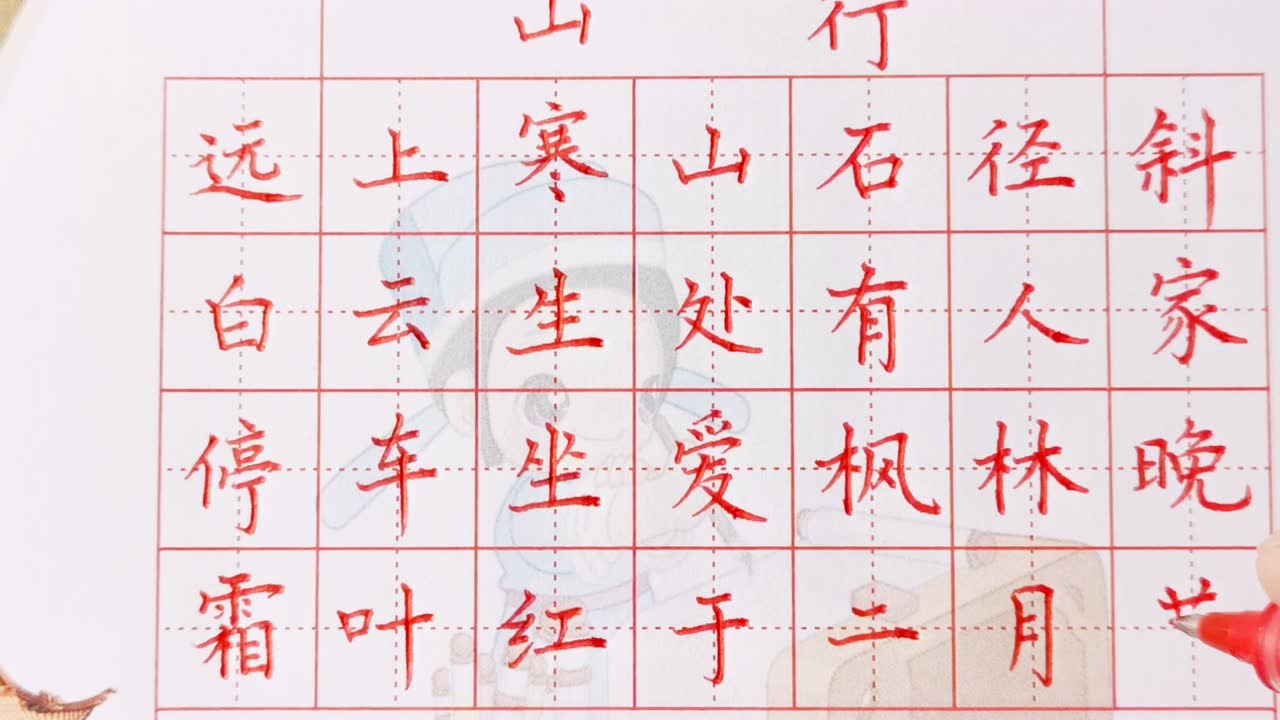 山行
远上寒山石径斜
白云生处有人家
停车坐爱枫林晚
霜叶红于二月